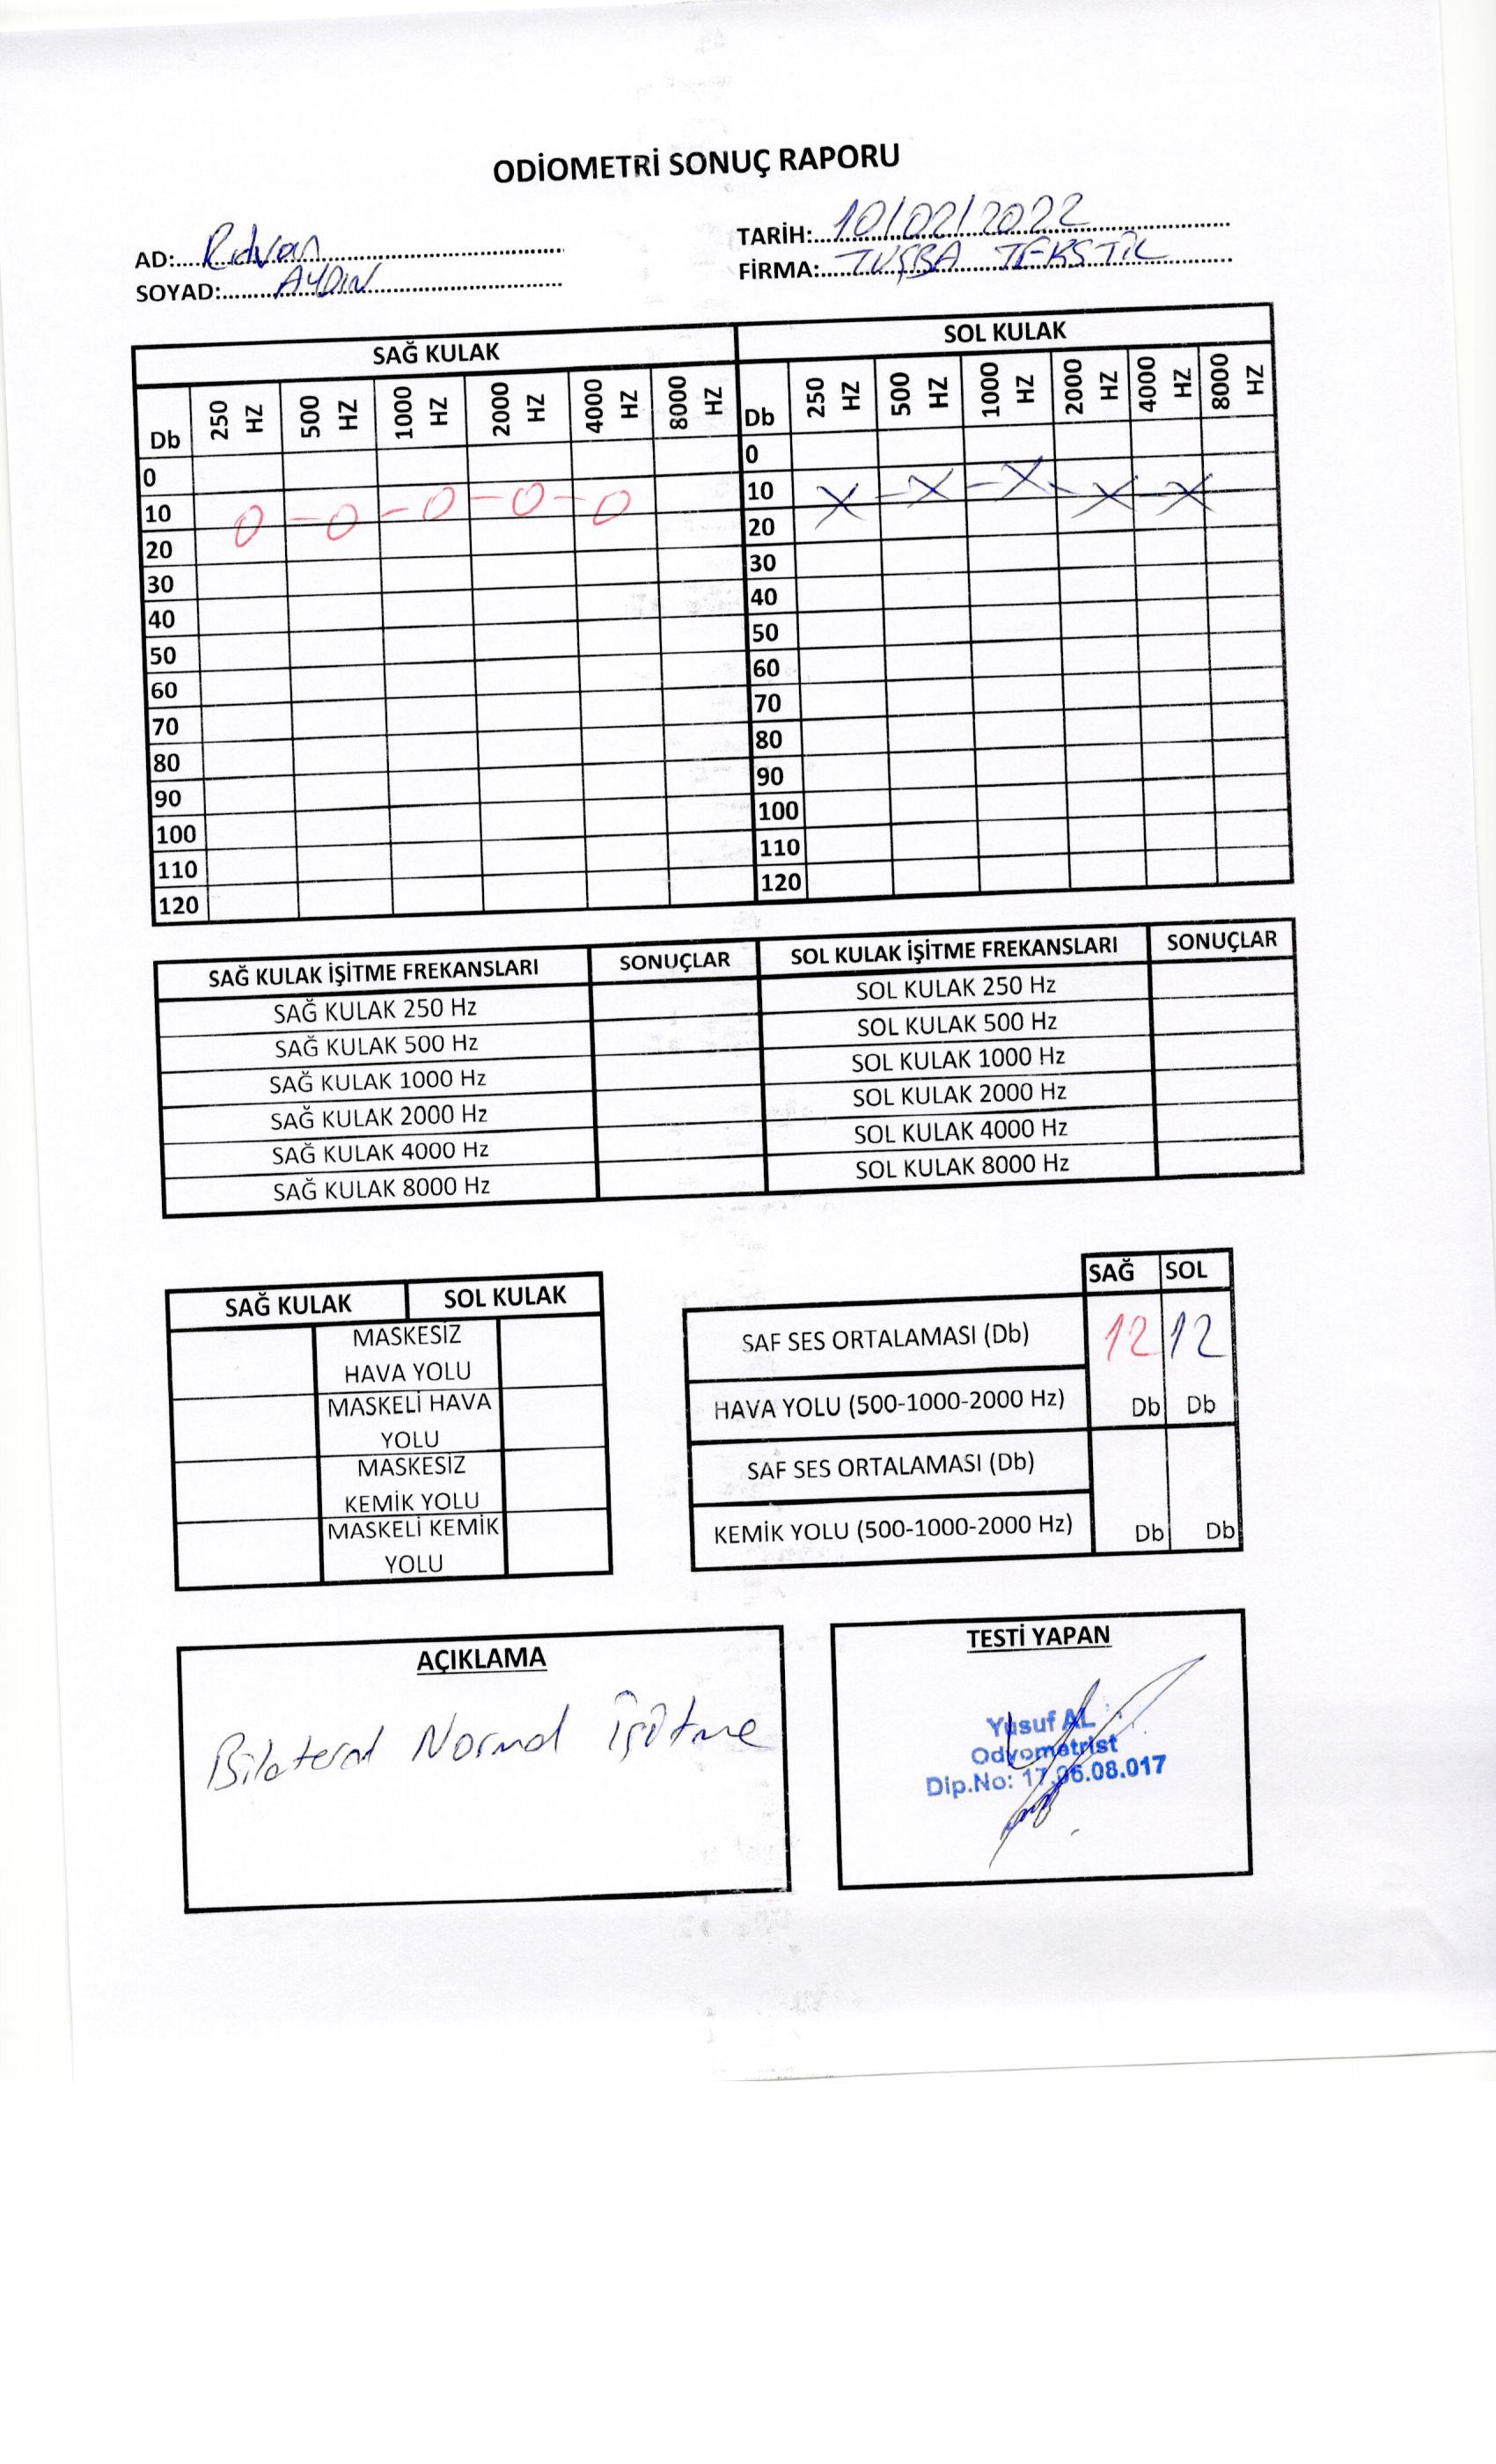 ODİOMETRİ SONUÇ RAPORU
AD: Rıdvan
TARİH: 10/02/2022
SOYAD: AYDIN
FİRMA: TUŞBA TEKSTİL
SAĞ KULAK SOL KULAK
Db 250 HZ 500 HZ 1000 HZ 2000 HZ 4000 HZ 8000 HZ Db 250 HZ 500 HZ 1000 HZ 2000 HZ 4000 HZ 8000 HZ
0 0
10 0-0-0-0-0 10 X-X-X-X-X
20 20
30 30
40 40
50 50
60 60
70 70
80 80
90 90
100 100
110 110
120 120
SAĞ KULAK İŞİTME FREKANSLARI SONUÇLAR SOL KULAK İŞİTME FREKANSLARI SONUÇLAR
SAĞ KULAK 250 Hz SOL KULAK 250 Hz
SAĞ KULAK 500 Hz SOL KULAK 500 Hz
SAĞ KULAK 1000 Hz SOL KULAK 1000 Hz
SAĞ KULAK 2000 Hz SOL KULAK 2000 Hz
SAĞ KULAK 4000 Hz SOL KULAK 4000 Hz
SAĞ KULAK 8000 Hz SOL KULAK 8000 Hz
SAĞ KULAK SOL KULAK
MASKESİZ
HAVA YOLU
MASKELİ HAVA
YOLU
MASKESİZ
KEMİK YOLU
MASKELİ KEMİK
YOLU
SAĞ SOL
SAF SES ORTALAMASI (Db) 12 12
HAVA YOLU (500-1000-2000 Hz) Db Db
SAF SES ORTALAMASI (Db)
KEMİK YOLU (500-1000-2000 Hz) Db Db
AÇIKLAMA
Bilateral Normal İşitme
TESTİ YAPAN
Yusuf AL
Odyometrist
Dip.No: 17.06.08.017